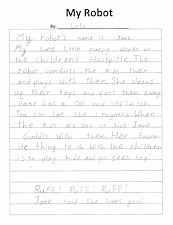 My Robot
By: Lola
My robot's name is Jane.
My cute little puppy works at
the childrens Hostpitle. The
robot comforts the kids ther
and plays with them. She cleans
up their toys and puts them away.
Jane has a on and off switch.
You can see she is magnetic. When
the kids are sad or sick Jane
cuddls with them. Her favor
ite thing to do with the children
is to play hide and go seek tag.
Ruff! Ruff! Ruff!
Jane said she loves you!